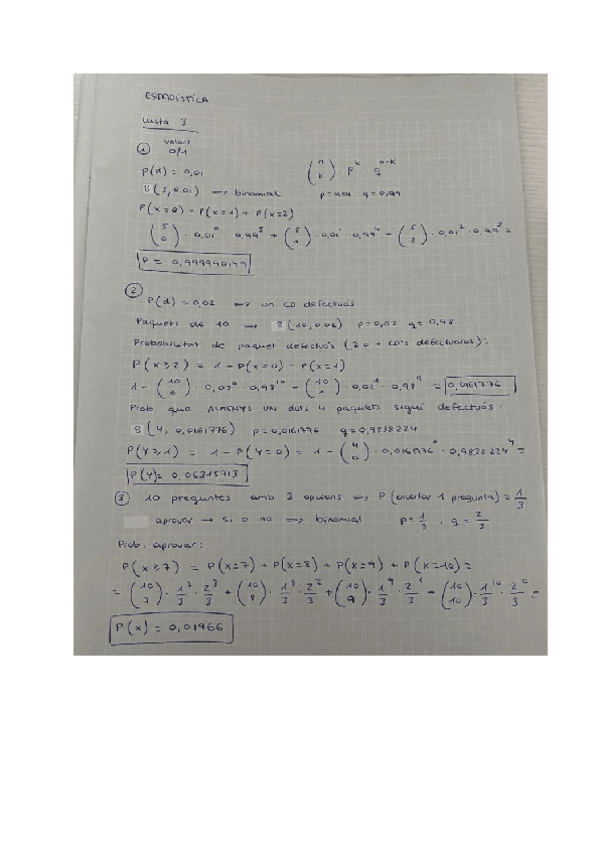 ESTADÍSTICA
Llista 3
① valors 0/1
P(d) = 0,01
(n k) · p^k q^n-k
B(5, 0.01) → binomial p=0,01 q=0,99
P(x=0) + P(x=1) + P(x=2)
(5 0) · 0,01^0 · 0,99^5 + (5 1) · 0,01^1 · 0,99^4 + (5 2) · 0,01^2 · 0,99^3 =
P = 0,999990149
②
P(d) = 0,02 → un CD defectuós
Paquets de 10 → B(10, 0.02) p=0,02 q=0,98
Probabilitat de paquet defectuós (2 o + CD's defectuosos):
P(x≥2) = 1 - P(x=0) - P(x=1)
1 - (10 0) · 0,02^0 · 0,98^10 - (10 1) · 0,02^1 · 0,98^9 = 0,0161776
Prob. que ALMENYS UN dels 4 paquets sigui defectuós.
B(4, 0,0161776) p=0,0161776 q=0,9838224
P(Y≥1) = 1 - P(Y=0) = 1 - (4 0) · 0,016176^0 · 0,9838224^4 =
P(Y) = 0,06315713
③ 10 preguntes amb 3 opcions ⟹ P(encertar 1 pregunta) = 1/3
aprovar → sí o no ⟹ binomial p=1/3, q=2/3
Prob. aprovar:
P(x≥7) = P(x=7) + P(x=8) + P(x=9) + P(x=10) =
= (10 7) · 1/3^7 · 2/3^3 + (10 8) · 1/3^8 · 2/3^2 + (10 9) · 1/3^9 · 2/3^1 + (10 10) · 1/3^10 · 2/3^0 =
P(x) = 0,01966